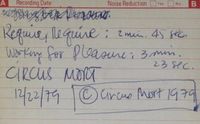 A Recording Date Noise Reduction Yes No B
Require, Require : 2 min. 45 sec.
Working for Pleasure : 3 min.
23 sec.
CIRCUS MORT
12/22/79 © Circus Mort 1979